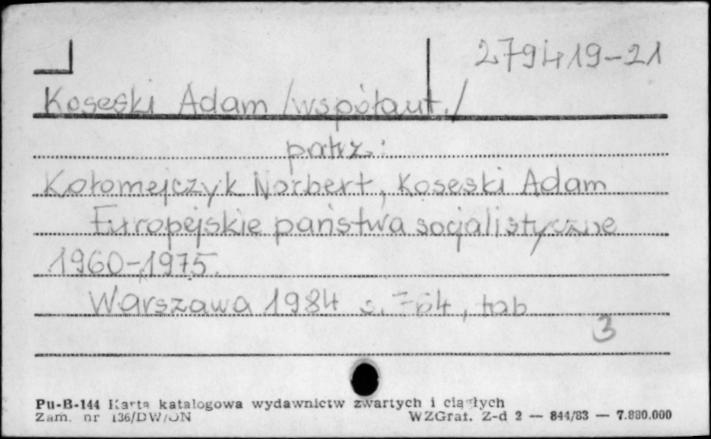 279419-21
Koseski Adam /współaut./
patrz:
Kołomejczyk Norbert, Koseski Adam
Europejskie państwa socjalistyczne
1960-1975.
Warszawa 1984 s. 764, tab
3
Pu-B-144 Karta katalogowa wydawnictw zwartych i ciągłych
Zam. nr 136/DW/ON WZGraf. Z-d 2 — 844/83 — 7.880.000